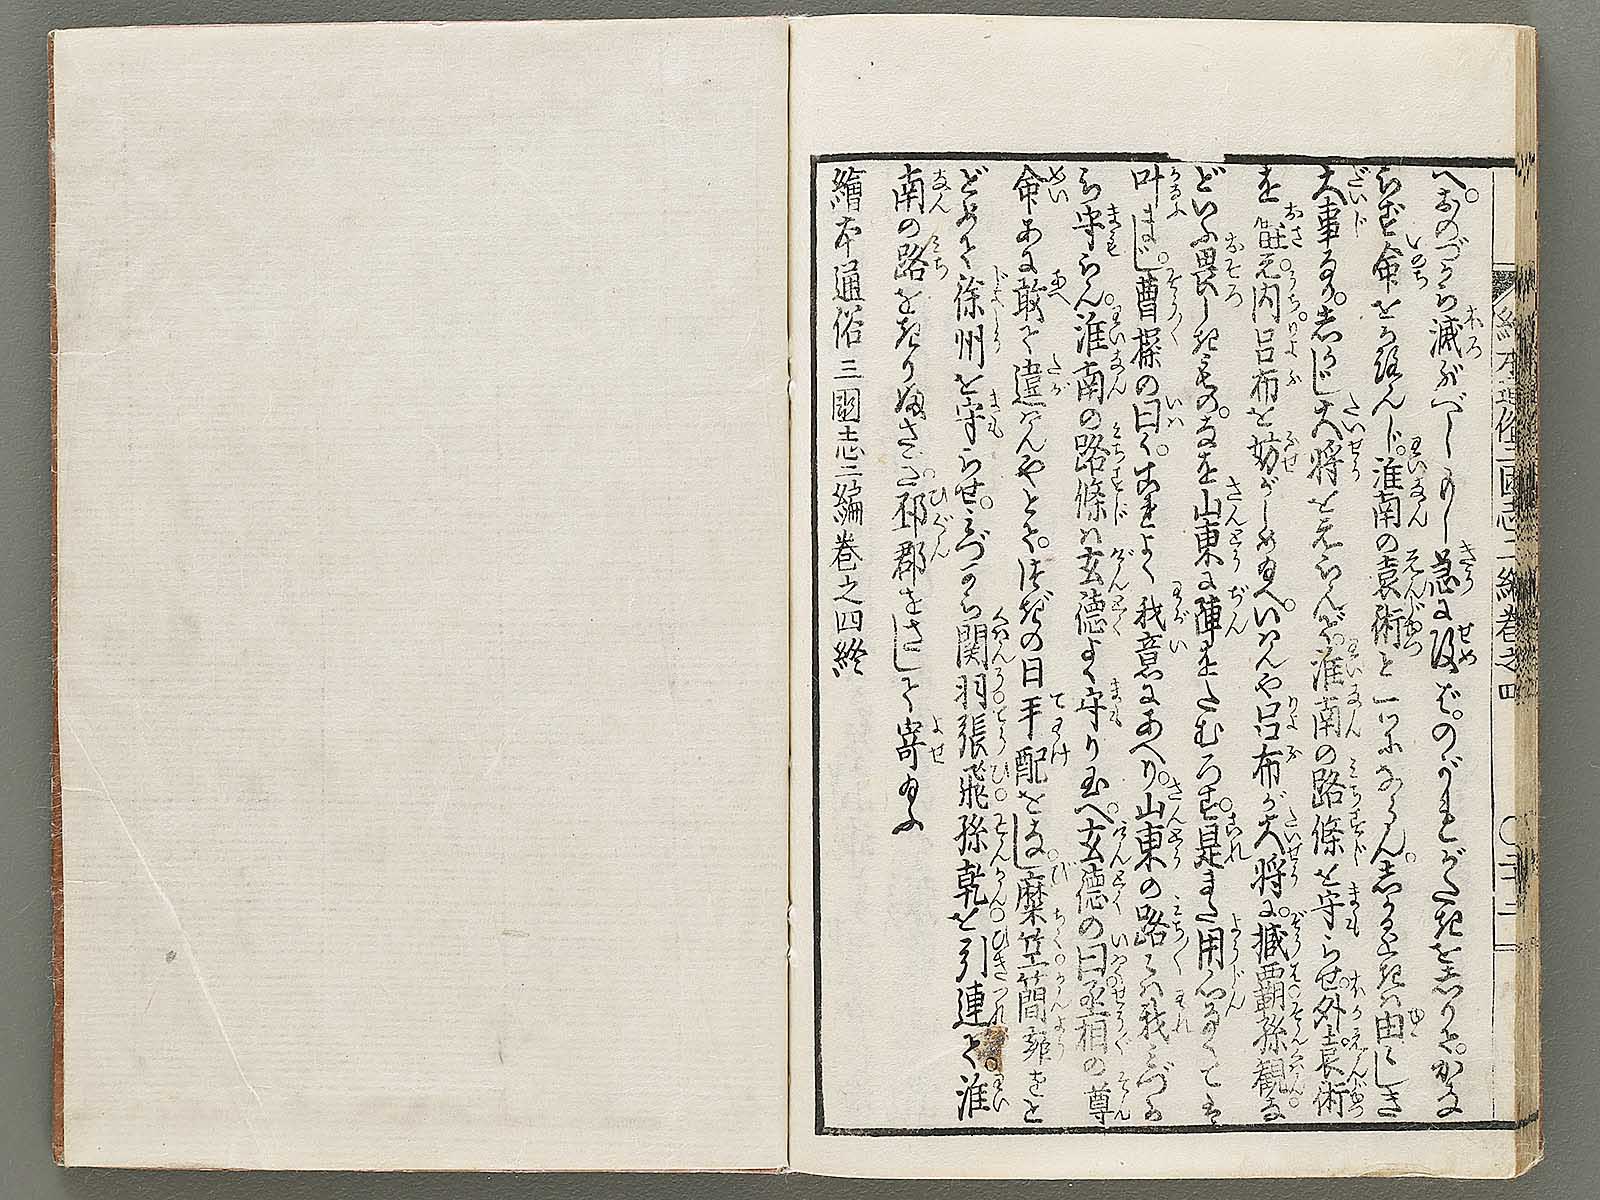 へ。おのづから滅ぶべしもし急に攻ば。のがれがたきを志りて。かな
らず命をうけんじ淮南の袁術と一つになるべし。志かるときは由〻しき
大事なり。志かじ大将をえらんで。淮南の路條を守らせ。外袁術
を〓。内呂布を妨がしめ給へ。いはんや呂布が大将に。臧覇孫観な
どいふ畏しきもの。なを山東に陣をとむろす。是また用心なくては
叶まじ。曹操の曰く。これよく我意にあへり。山東の路〻は我みづか
ら守らん。淮南の路條は玄徳よく守り玉へ。玄徳の曰丞相の尊
命あに敢て違はんやとて。次の日手配をなし。糜竺簡雍をと
どめて徐州を守らせ。みづから関羽張飛孫乾を引連て。淮
南の路をきりふさぎ。邳郡をさして寄給ふ
繪本通俗三國志二編巻之四終
繪本通俗三國志二編巻之四 〇二十二